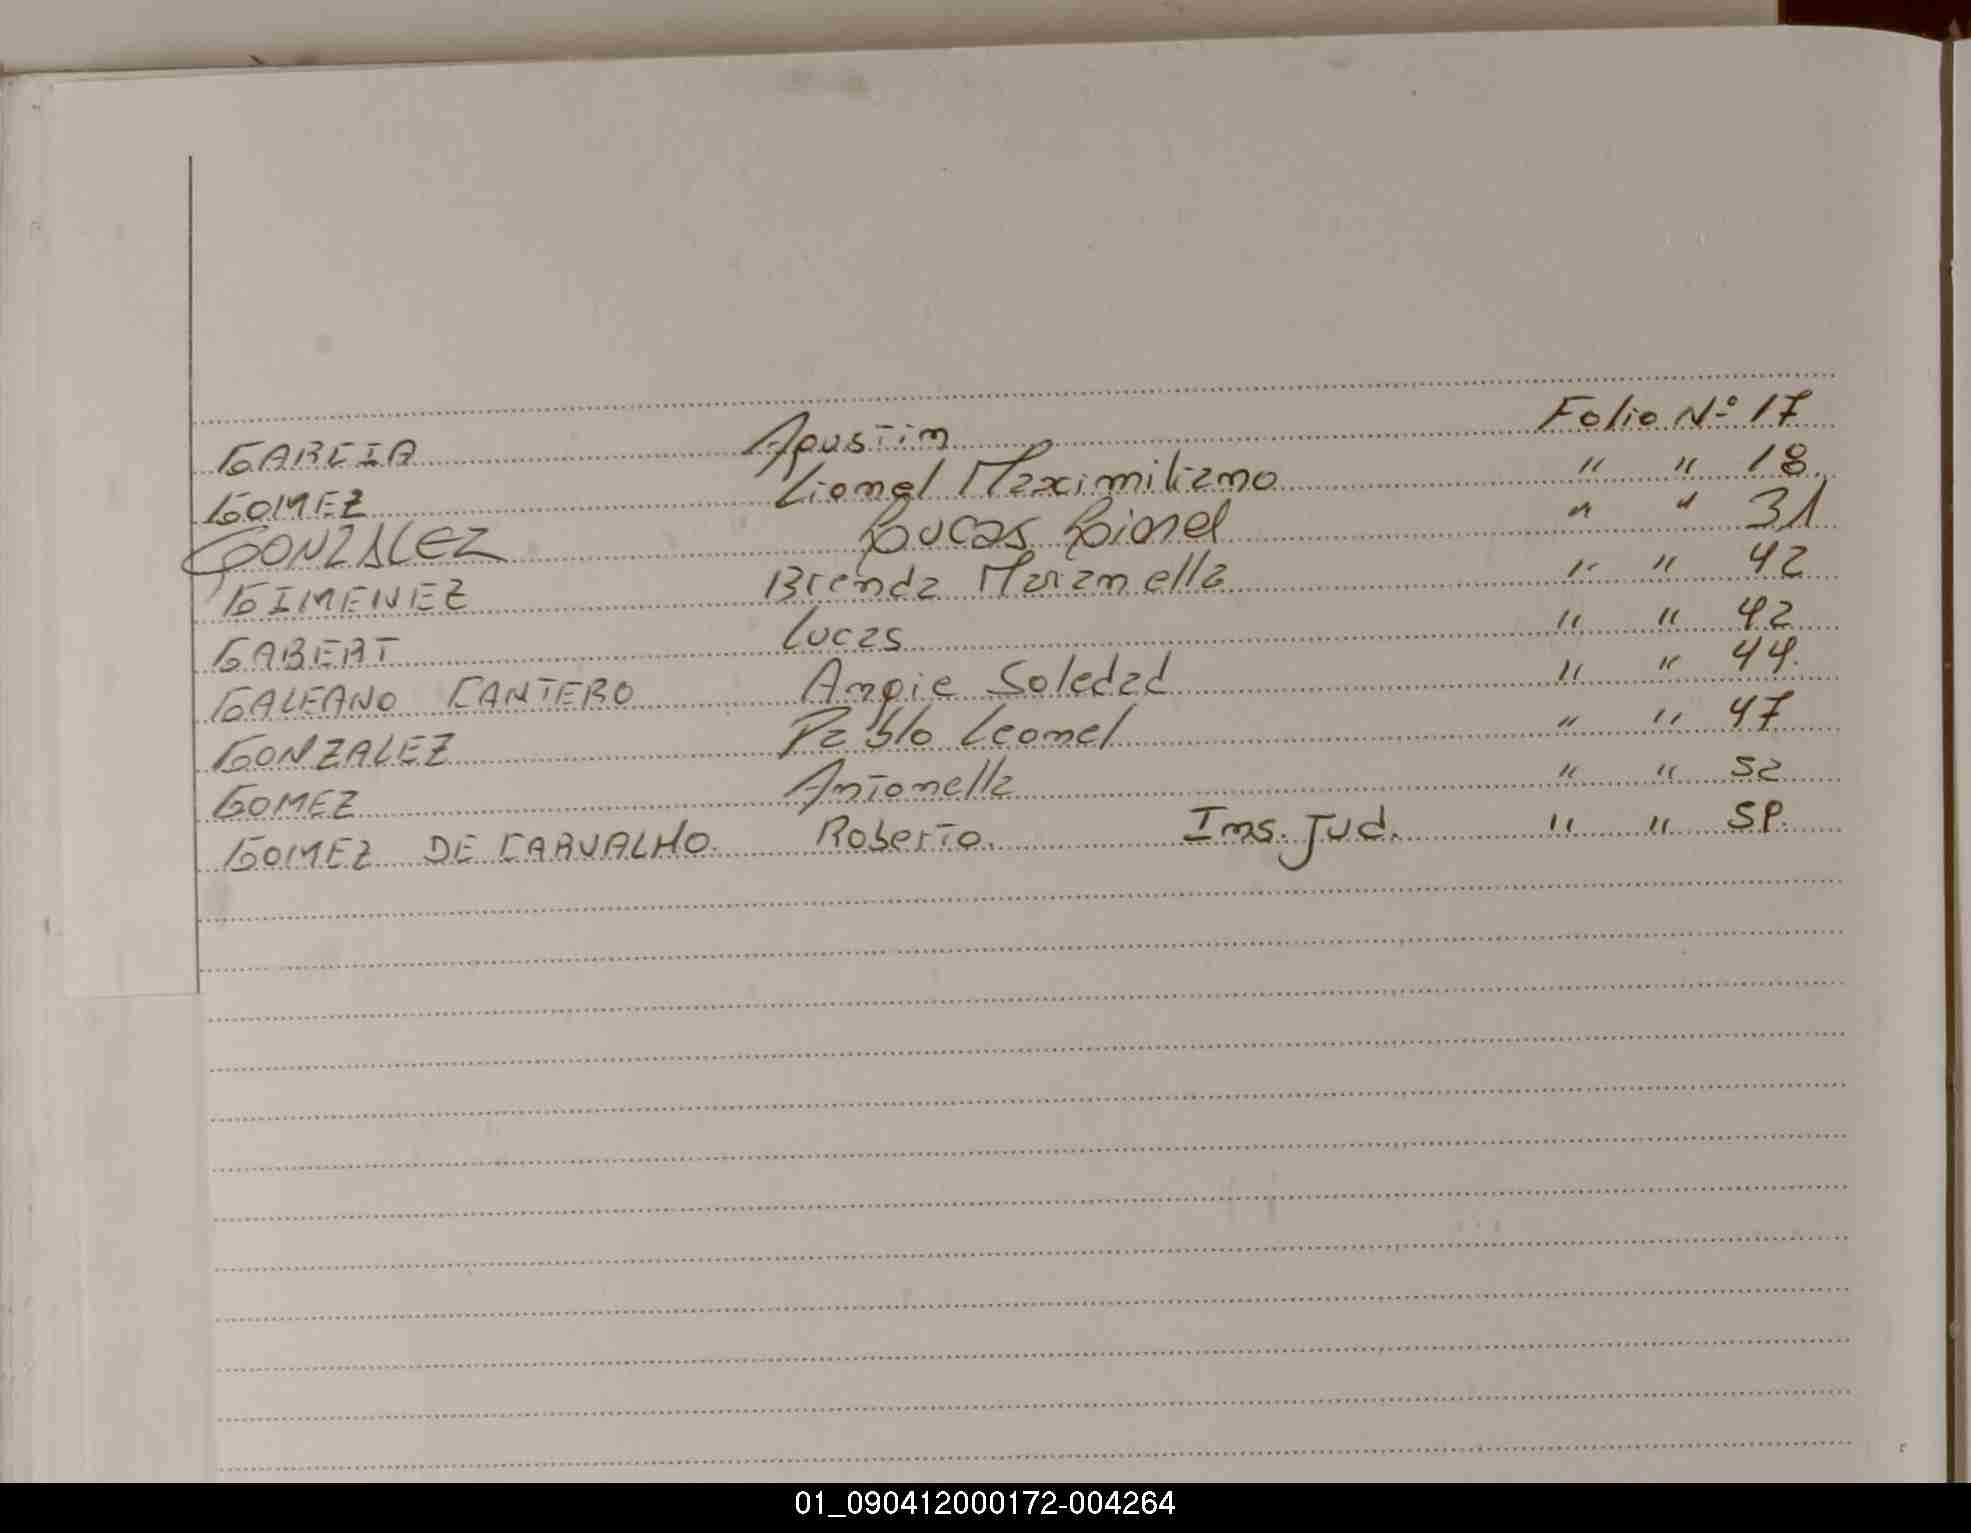 GARCIA Agustin Folio Nº 17
GOMEZ Lionel Maximiliano " " 18
GONZALEZ Lucas Lionel " " 31
GIMENEZ Brenda Marianella " " 42
GABERT Lucas " " 42
GALEANO CANTERO Angie Soledad " " 44
GONZALEZ Pablo Leonel " " 47
GOMEZ Antonella " " 52
GOMEZ DE CARVALHO Roberto. Ins. Jud. " "
01_090412000172-004264